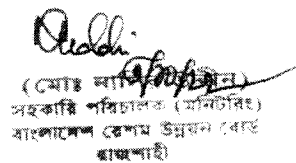 (মোঃ না
সহকারি পরিচালক (মনিটরিং)
বাংলাদেশ রেশম উন্নয়ন বোর্ড
রাজশাহী